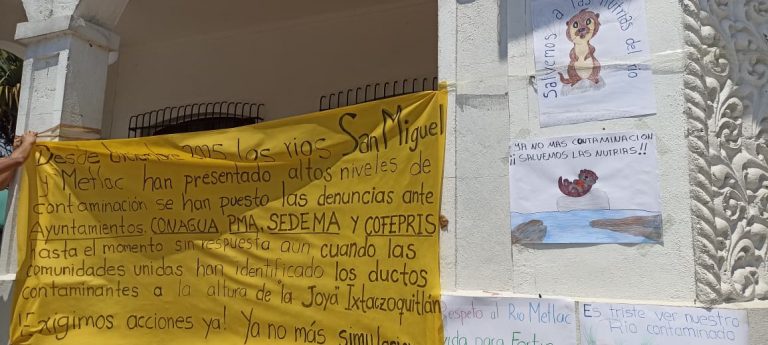 Desde diciembre 2015 los ríos San Miguel
y Metlac han presentado altos niveles de
contaminación se han puesto las denuncias ante
Ayuntamientos, CONAGUA, PMA, SEDEMA y COFEPRIS
hasta el momento sin respuesta aun cuando las
comunidades unidas han identificado los ductos
contaminantes a la altura de "la Joya" Ixtaczoquitlán
¡Exigimos acciones ya! Ya no más
Salvemos a las nutrias del rio
YA NO MAS CONTAMINACION
¡¡ SALVEMOS LAS NUTRIAS!!
Respeto al Río Metlac
vida para
Es triste ver nuestro
Río contaminado